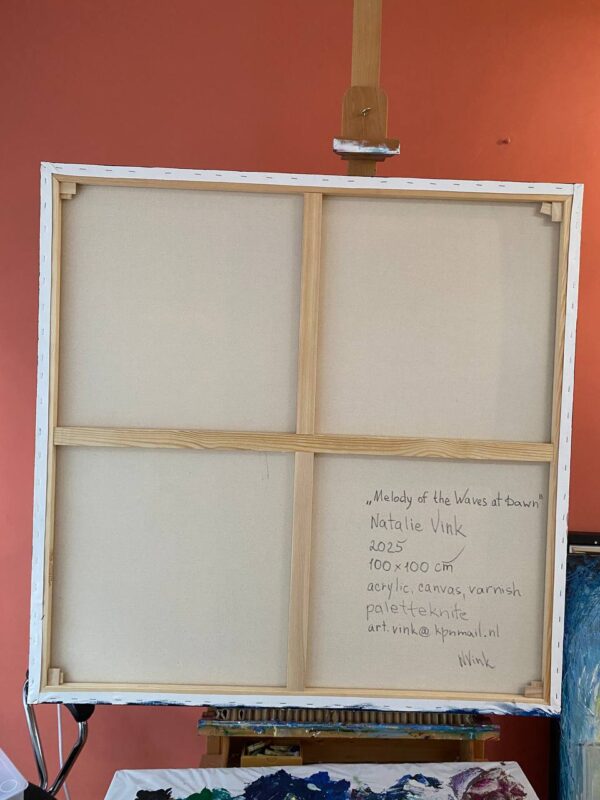 „Melody of the Waves at Dawn"
Natalie Vink
2025
100 x 100 cm
acrylic, canvas, varnish
paletteknife
art.vink@kpnmail.nl
NVink